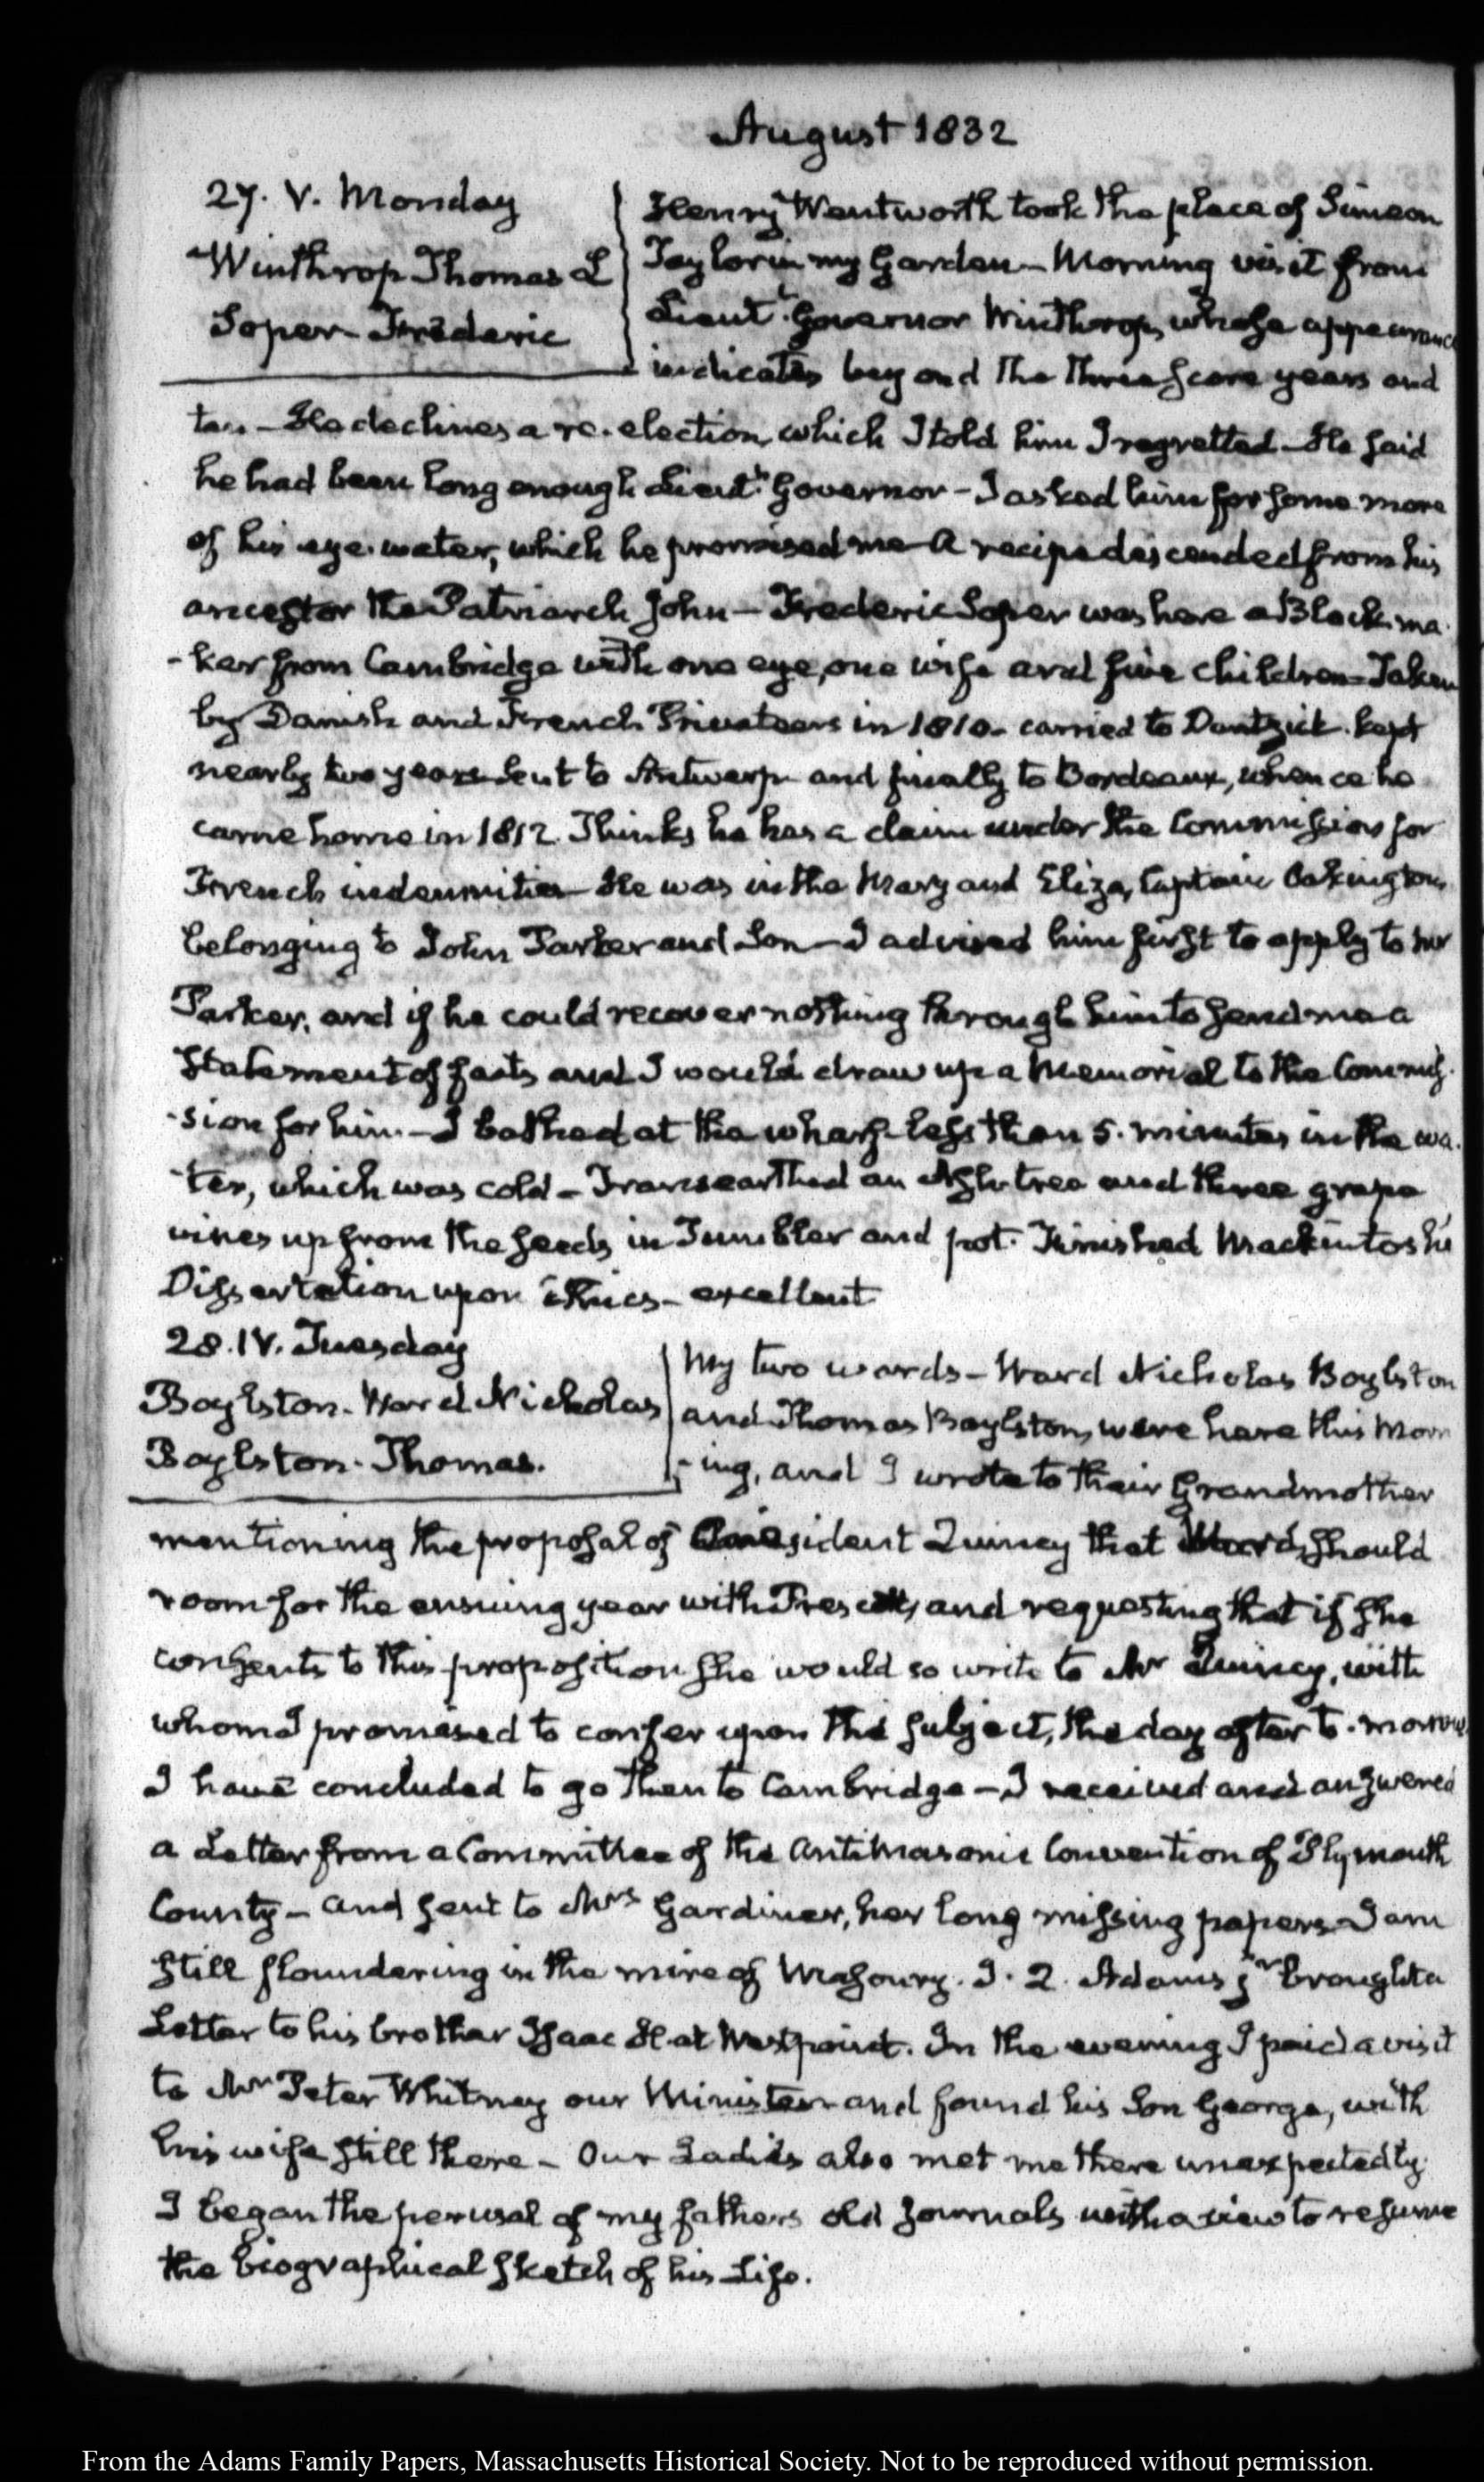 August 1832
27. V. Monday
Winthrop Thomas L
Soper Frederic
Henry Wentworth took the place of Simeon
Taylor in my Garden — Morning visit from
Lieut.t Governor Winthrop, whose appearance
indicates beyond the three score years and
ten — He declines a re-election, which I told him I regretted — He said
he had been long enough Lieut.t Governor — I asked him for some more
of his eye-water, which he promised me — A recipe descended from his
ancestor the Patriarch John — Frederic Soper was here a Block ma-
-ker from Cambridge with one eye, one wife and five children — Taken
by Danish and French Privateers in 1810 — carried to Dantzick. kept
nearly two years — Sent to Antwerp — and finally to Bordeaux, whence he
came home in 1812. Thinks he has a claim under the Commission for
French indemnities — He was in the Mary and Eliza, Captain
belonging to John Parker and Son — I advised him first to apply to Mr
Parker, and if he could recover nothing through him to send me a
Statement of facts and I would draw up a Memorial to the Commis-
-sion for him. — I bathed at the wharf — less than 5. minutes in the wa-
-ter, which was cold — Transearthed an Ash-tree and three grape
vines up from the seeds in Tumbler and pot. Finished Mackintosh's
Dissertation upon Ethics — excellent
28. IV. Tuesday
Boylston. Ward Nicholas
Boylston. Thomas.
My two wards — Ward Nicholas Boylston
and Thomas Boylston, were here this Morn
-ing, and I wrote to their Grandmother
mentioning the proposal of President Quincy that Ward should
room for the ensuing year with Prescott, and requesting that if she
consents to this proposition she would so write to Mr Quincy, with
whom I promised to confer upon the subject, the day after to-morrow.
I have concluded to go then to Cambridge — I received and answered
a Letter from a Committee of the Antimasonic Convention of Plymouth
County — and sent to Mrs Gardiner, her long missing papers — I am
still floundering in the mire of Masonry. J. Q. Adams jr brought a
Letter to his brother Isaac H at Westpoint. In the evening I paid a visit
to Mr Peter Whitney our Minister and found his Son George, with
his wife still there — Our Ladies also met me there unexpectedly.
I began the perusal of my fathers old Journals with a view to resume
the biographical sketch of his Life.
From the Adams Family Papers, Massachusetts Historical Society. Not to be reproduced without permission.